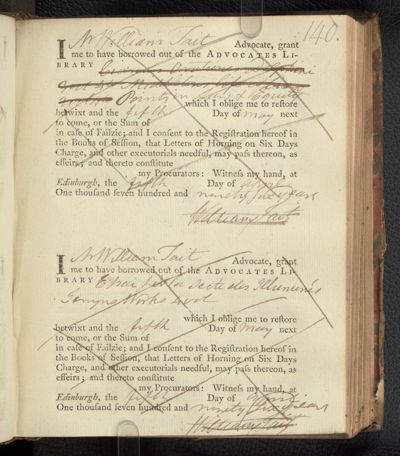 140.
I Mr William Tait Advocate, grant
me to have borrowed out of the ADVOCATES LI-
BRARY
Points in Law & Equity which I oblige me to restore
betwixt and the fifth Day of May next
to come, or the Sum of
in case of Failzie; and I consent to the Registration hereof in
the Books of Session, that Letters of Horning on Six Days
Charge, and other executorials needful, may pass thereon, as
effeirs; and thereto constitute
my Procurators: Witness my hand, at
Edinburgh, the fifth Day of April
One thousand seven hundred and ninety six years
William Tait
I Mr William Tait Advocate, grant
me to have borrowed out of the ADVOCATES LI-
BRARY Essai sur la Secte des Illuminés
Works
which I oblige me to restore
betwixt and the fifth Day of May next
to come, or the Sum of
in case of Failzie; and I consent to the Registration hereof in
the Books of Session, that Letters of Horning on Six Days
Charge, and other executorials needful, may pass thereon, as
effeirs; and thereto constitute
my Procurators: Witness my hand, at
Edinburgh, the fifth Day of April
One thousand seven hundred and ninety six years
William Tait